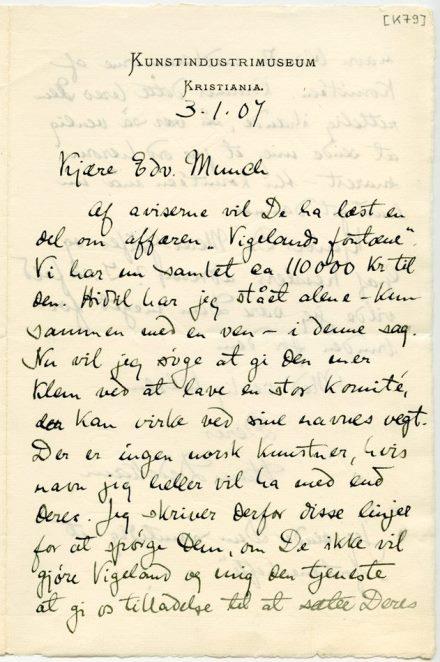 [K79]
KUNSTINDUSTRIMUSEUM
KRISTIANIA.
3.1.07
Kjære Edv. Munch
Af aviserne vil De ha læst en
del om affæren "Vigelands fontæne".
Vi har nu samlet ca 110000 Kr til
den. Hidtil har jeg stået alene – kun
sammen med en ven – i denne sag.
Nu vil jeg søge at gi den mer
klem ved at lave en stor Komité,
der kan virke ved sine navnes vegt.
Der er ingen norsk kunstner, hvis
navn jeg heller vil ha med end
Deres. Jeg skriver derfor disse linjer
for at spørge Dem, om De ikke vil
gjøre Vigeland og mig den tjeneste
at gi os tilladelse til at sætte Deres